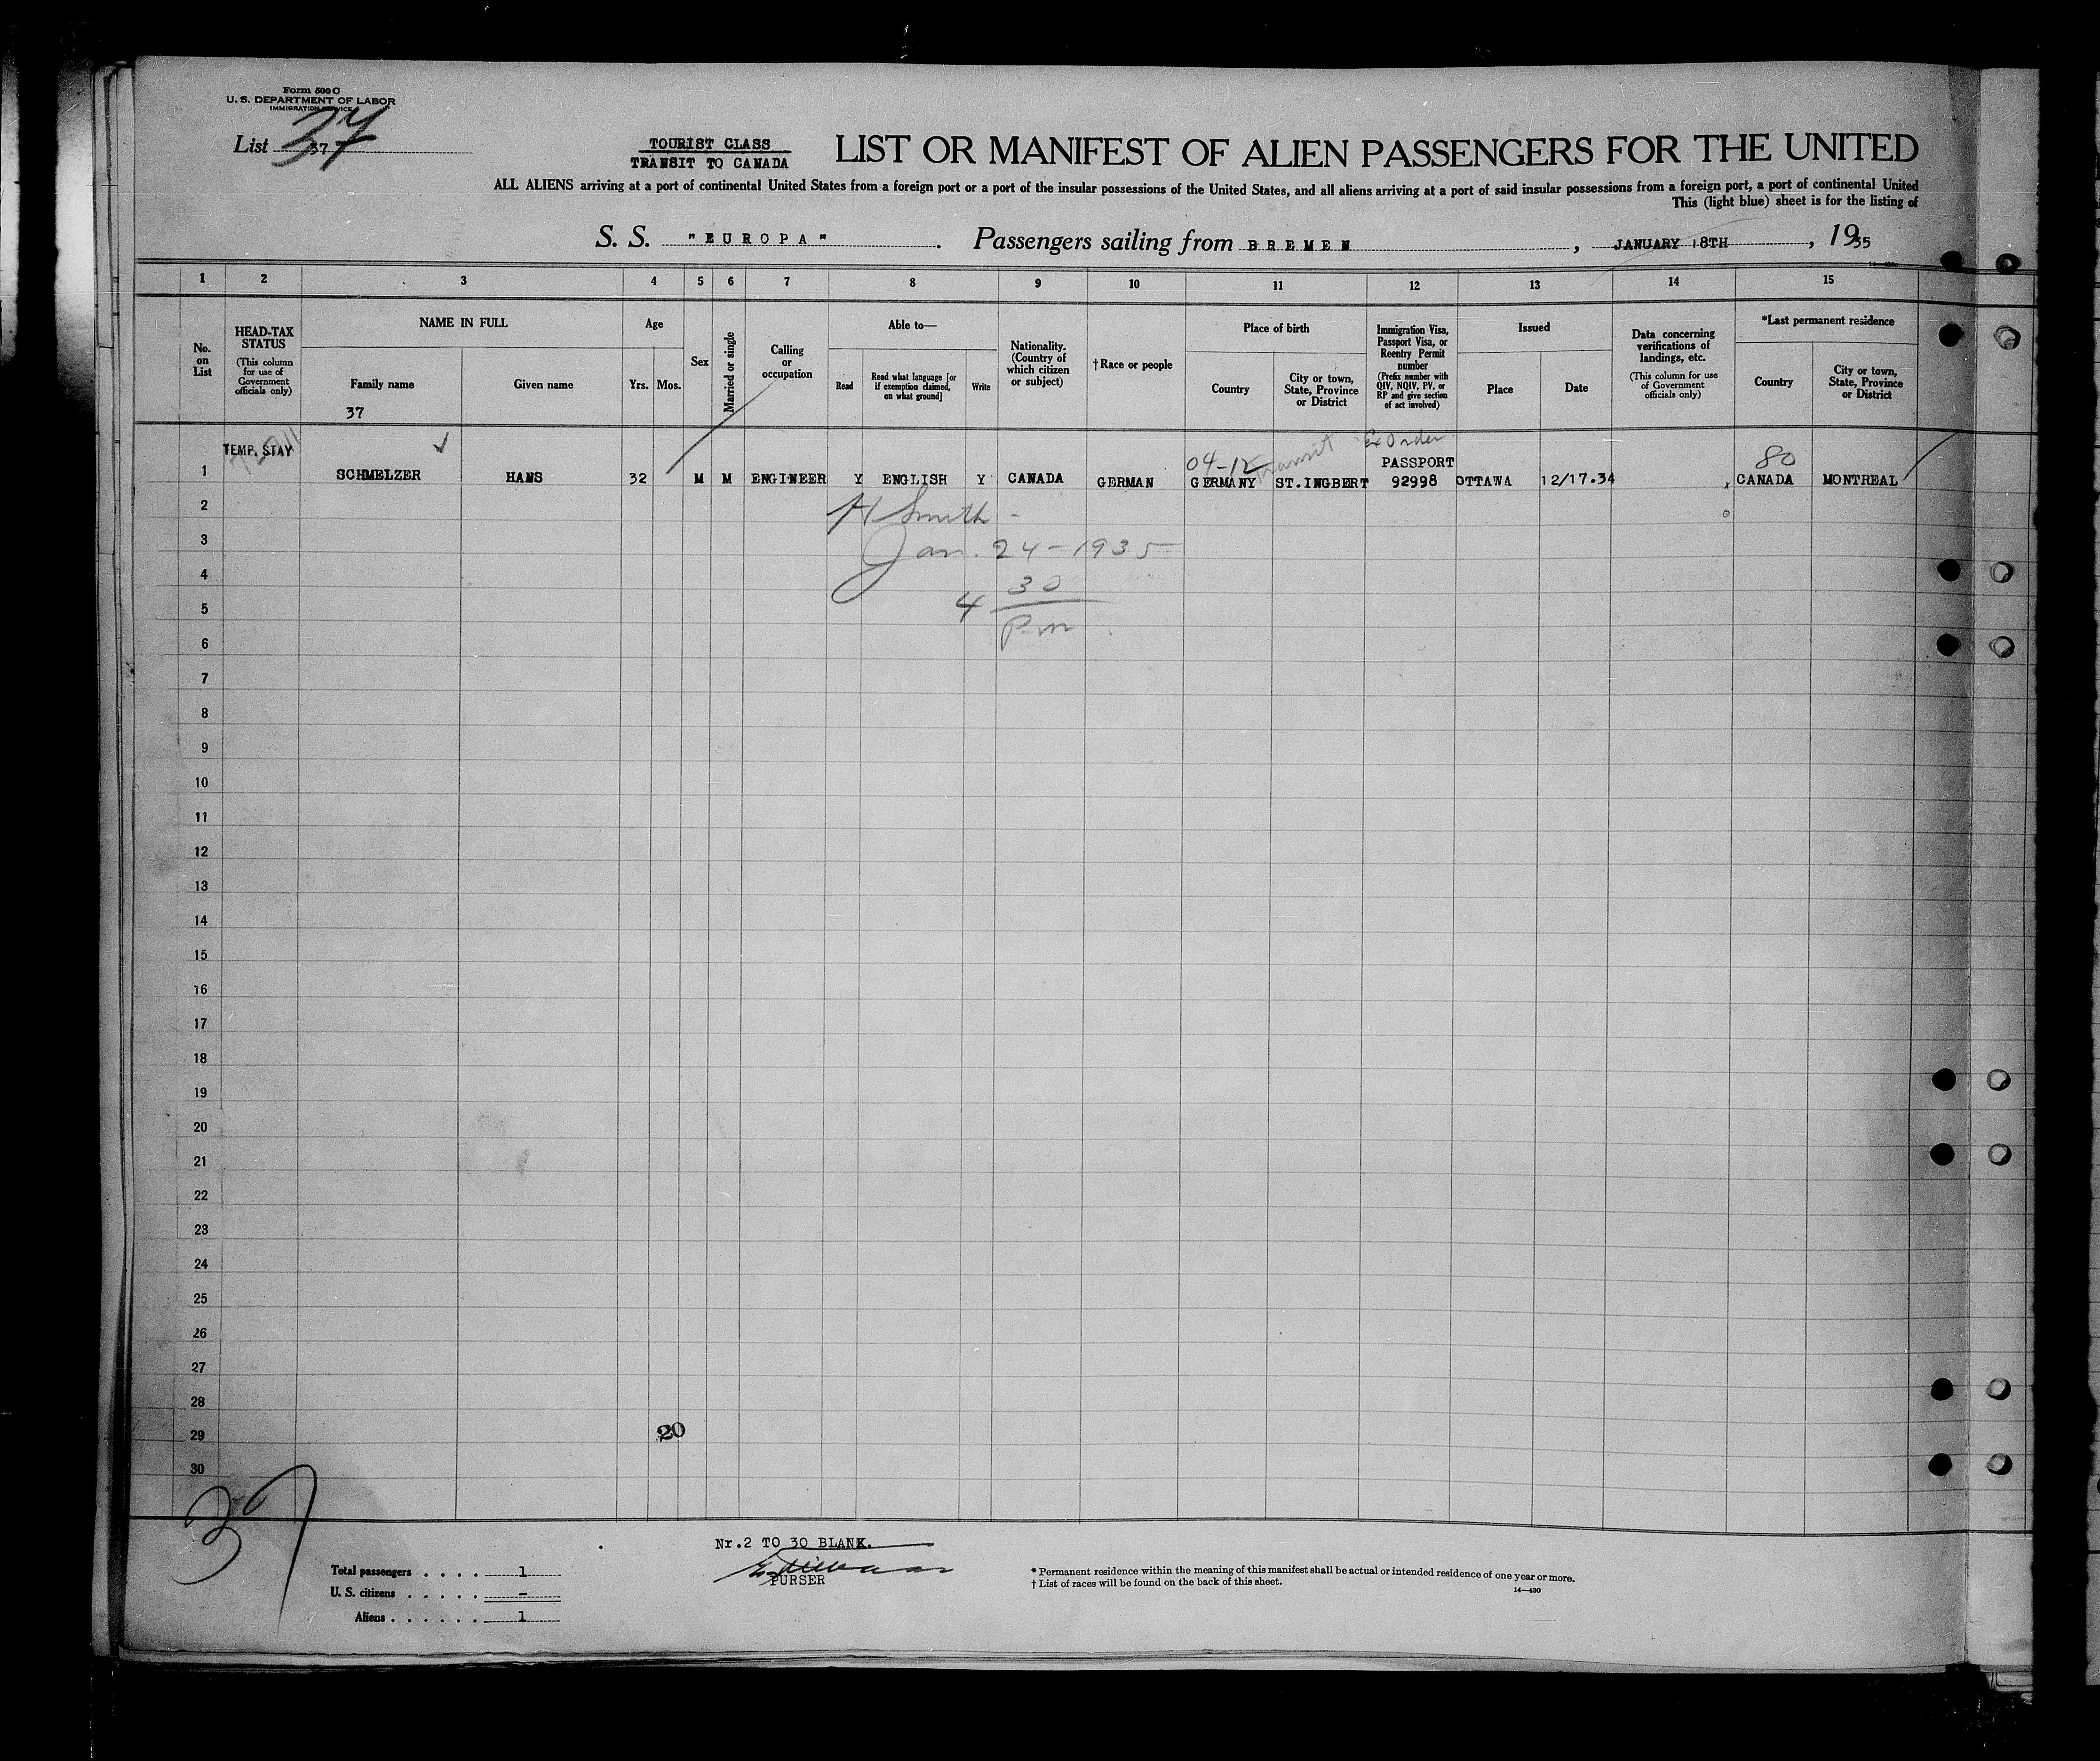 Form 500 C
U. S. DEPARTMENT OF LABOR
IMMIGRATION SERVICE
List 37
37
TOURIST CLASS
TRANSIT TO CANADA
LIST OR MANIFEST OF ALIEN PASSENGERS FOR THE UNITED
ALL ALIENS arriving at a port of continental United States from a foreign port or a port of the insular possessions of the United States, and all aliens arriving at a port of said insular possessions from a foreign port, a port of continental United
This (light blue) sheet is for the listing of
S. S. "EUROPA". Passengers sailing from BREMEN, JANUARY 18TH, 1935
1 2 3 4 5 6 7 8 9 10 11 12 13 14 15
No. on List
HEAD-TAX STATUS
(This column for use of Government officials only)
NAME IN FULL
Family name
37
Given name
Age
Yrs. Mos.
Sex
Married or single
Calling or occupation
Able to—
Read
Read what language [or if exemption claimed, on what ground]
Write
Nationality. (Country of which citizen or subject)
†Race or people
Place of birth
Country
City or town, State, Province or District
Immigration Visa, Passport Visa, or Reentry Permit number
(Prefix number with QIV, NQIV, PV, or RP and give section of act involved)
Issued
Place
Date
Data concerning verifications of landings, etc.
(This column for use of Government officials only)
*Last permanent residence
Country
City or town, State, Province or District
04-12 Transit Ex Order 80
TEMP. STAY PASSPORT
1 SCHMELZER HANS 32 M M ENGINEER Y ENGLISH Y CANADA GERMAN GERMANY ST.INGBERT 92998 OTTAWA 12/17.34 CANADA MONTREAL
2 H Smith -
3 Jan. 24-1935
4 30
5 4 P.m
6
7
8
9
10
11
12
13
14
15
16
17
18
19
20
21
22
23
24
25
26
27
28
29 20
30
37
Nr.2 TO 30 BLANK.
PURSER
Total passengers . . . . 1
U. S. citizens . . . . . -
Aliens . . . . . . 1
* Permanent residence within the meaning of this manifest shall be actual or intended residence of one year or more.
† List of races will be found on the back of this sheet.
14—430